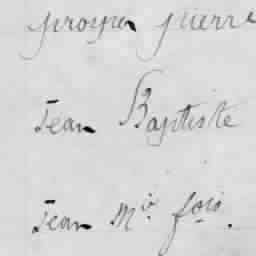 prosper pierre
Jean Baptiste
Jean M.ie fois.